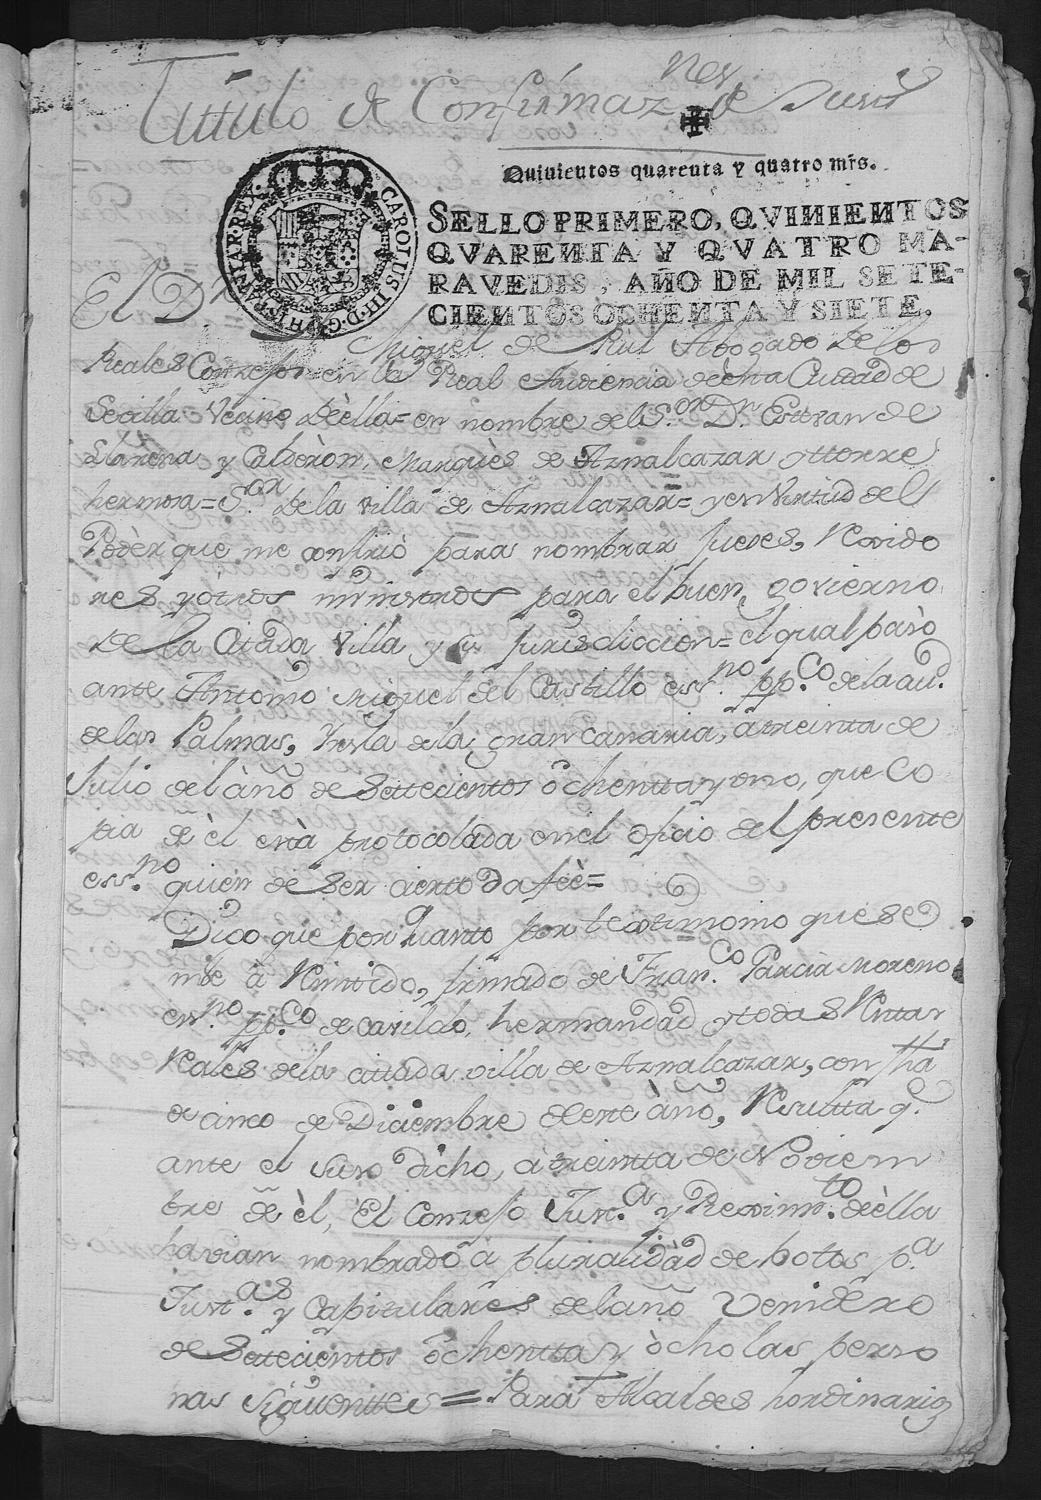 Tittulo de Confirmaz.nes de Justs
Quinientos quarenta y quatro mrs.
CAROLUS III D. G. HISPANIAR. REX.
SELLO PRIMERO, QVINIENTOS
QVARENTA Y QVATRO MA-
RAVEDIS, AÑO DE MIL SETE-
CIENTOS OCHENTA Y SIETE.
El Dr
Miguel de Rul Abogado de los
Reales Consejos en la Real Audiencia de esta Ciudad de
Sevilla Vecino deèlla= en nombre del S.or Dn Estevan de
Llarena y Calderòn, Marquès de Aznalcazar y ttorre
hermosa= S.or de la villa de Aznalcazar= y en Virtud del
Podèr que me confiriò para nombrar Jueses, Rexido
res y òtros ministros para el buen govierno
de la Citada Villa y su Jurisdiccion= el qual pasò
ante Antonio Miguel del Castillo ess.no pp.co de la ciu.d
de las Palmas, Ysla de la gran Canaria, a treinta de
Julio del año de settecientos òchentta y uno, que Co
pia de èl està protocolada en el oficio del presente
ess.no quien de ser cierto da feè=
Digo que por quanto por testimonio que se
me à Remitido, firmado de Fran.co Garcia Moreno
ess.no pp.co de cavildo, hermandad y todas Renttas
Reales de la cittada villa de Aznalcazar, con fha
de cinco de Diciembre de este año, Resultta q.e
ante el suso dicho, à treintta de Noviem
bre de èl, El Consejo Just.a y Reximi.to deèlla
havian nombrado à pluralidàd de botos p.a
Just.as y Capitulares del año Venidero
de Settecientos òchentta y òcho las perso
nas siguientes = Para Alcaldes hordinarios